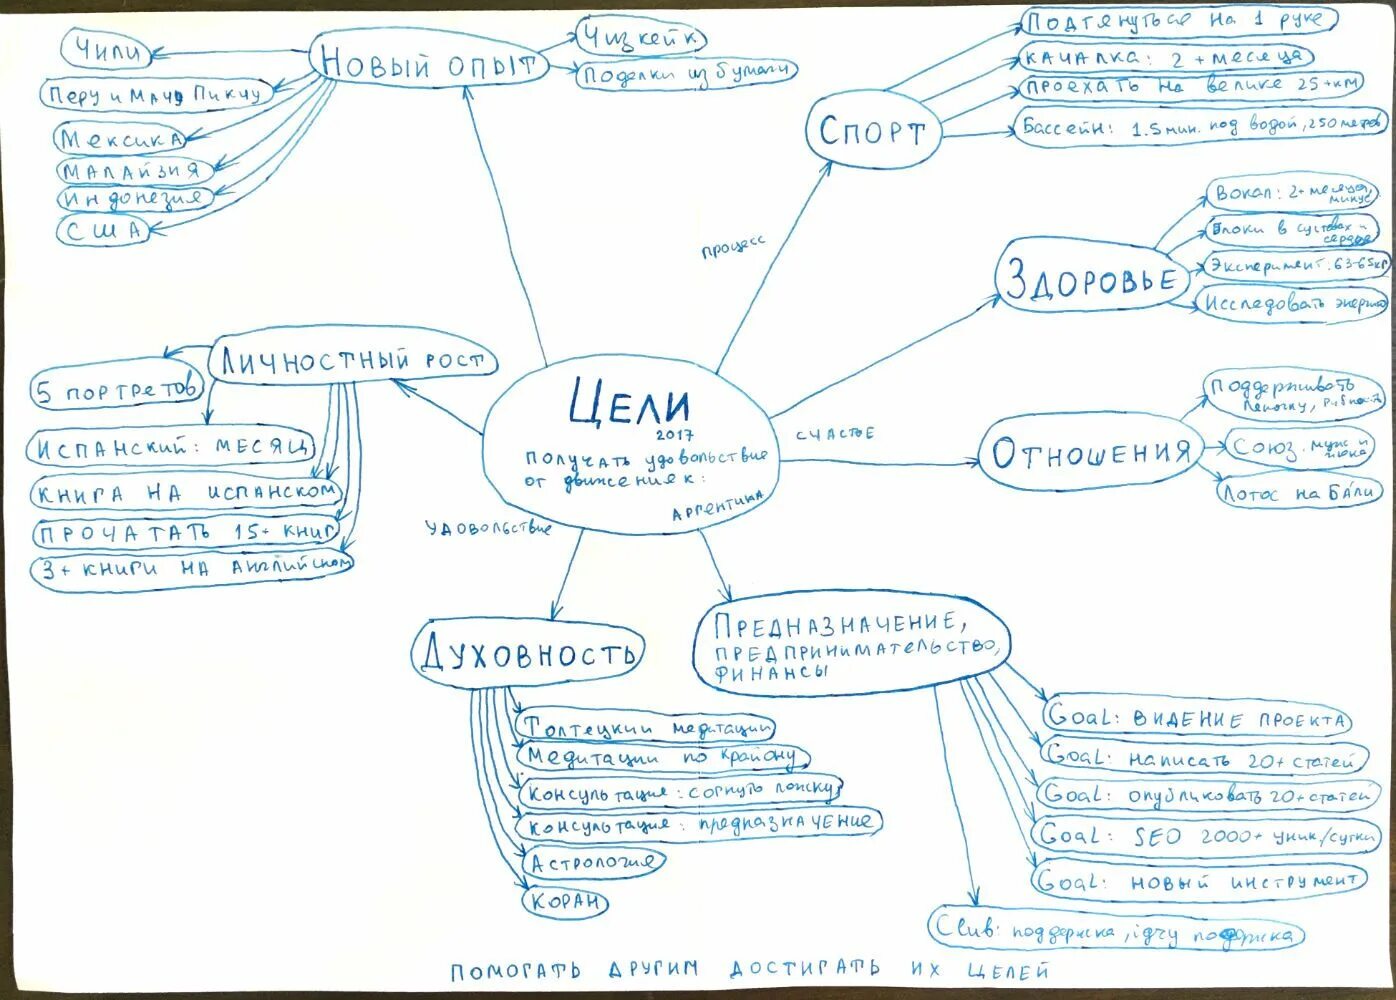 Новый опыт
Чили
Перу и Мачу Пикчу
Мексика
Малайзия
Индонезия
США
Чизкейк
Поделки из бумаги
Спорт
Подтянуться на 1 руке
качалка: 2+ месяца
проехать на велике 25+км
Бассейн: 1.5 мин. под водой, 250 метров
процесс
Здоровье
Вокал: 2+ месяца,
минус
Блоки в суставах и
сердце
Эксперимент. 63-65кг
Исследовать энергию
Личностный рост
5 портретов
Испанский: месяц
книга на испанском
прочатать 15+ книг
3+ книги на английском
Цели
2017
получать удовольствие
от движения к:
Аргентина
счастье
удовольствие
Отношения
Поддерживать
Леночку,
Союз. муж и
жена
Лотос на Бали
Духовность
Толтецкии медитации
Медитации по Крайону
консультация: согнуть ложку
консультация: предназначение
Астрология
Коран
Предназначение,
предпринимательство,
финансы
Goal: видение проекта
Goal: написать 20+ статей
Goal: опубликовать 20+ статей
Goal: SEO 2000+ уник/сутки
Goal: новый инструмент
поддержка,
помогать другим достигать их целей